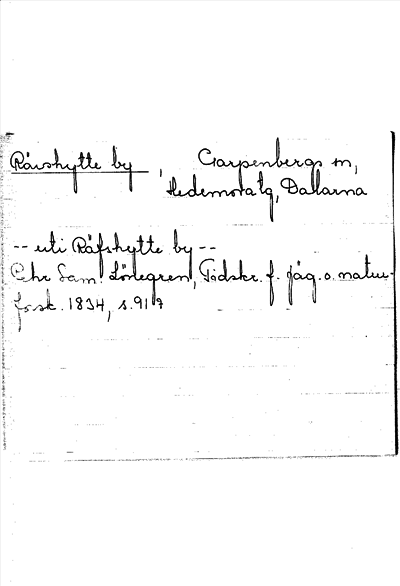 Råvshytte by, Garpenbergs sn,
Hedemora tg, Dalarna
-- uti Råfshytte by --
Chr Sam. Lönegren, Tidskr. f. jäg. o. natur-
forsk. 1834, s. 917